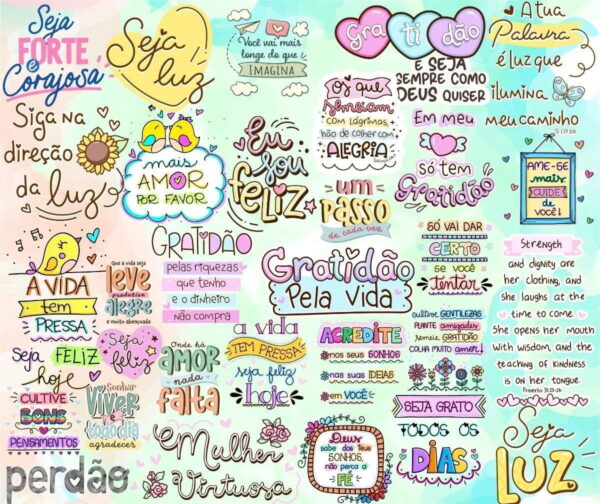 Seja
FORTE
e
Corajosa
Seja
luz
Você vai mais
longe do que
IMAGINA
Gra ti dão
E SEJA
SEMPRE COMO
DEUS QUISER
A tua
Palavra
é luz que
ilumina
meu caminho
Siga na
direção
da luz
mais
AMOR
POR FAVOR
Eu
sou
feliz
Os que
semeiam
com lágrimas,
hão de colher com
ALEGRIA
um
PASSO
de cada vez
Em meu
só tem
Gratidão
AME-SE
mais
CUIDE
DE
VOCÊ!
A VIDA
tem
PRESSA
Que a vida seja
leve
produtiva
alegre
e muito abençoada
GRATIDÃO
pelas riquezas
que tenho
e o dinheiro
não compra
Gratidão
Pela Vida
SÓ VAI DAR
CERTO
SE VOCÊ
tentar
Strength
and dignity are
her clothing, and
she laughs at the
time to come.
She opens her mouth
with wisdom, and the
teaching of kindness
is on her tongue.
Proverbs 31:25-26
Seja FELIZ
hoje
CULTIVE
BONS
PENSAMENTOS
Seja
feliz
Sonhar
VIVER
e
todo dia
agradecer
Onde há
AMOR
nada
falta
a vida
TEM PRESSA
seja feliz
hoje
ACREDITE
nos seus SONHOS
nas suas IDEIAS
em VOCÊ
cultive GENTILEZAS
PLANTE amizades
semeie GRATIDÃO
COLHA MUITO amor!
SEJA GRATO
TODOS OS
DIAS
perdão
Mulher
Virtuosa
Deus
sabe dos Teus
SONHOS,
não perca a
FÉ
Seja
LUZ